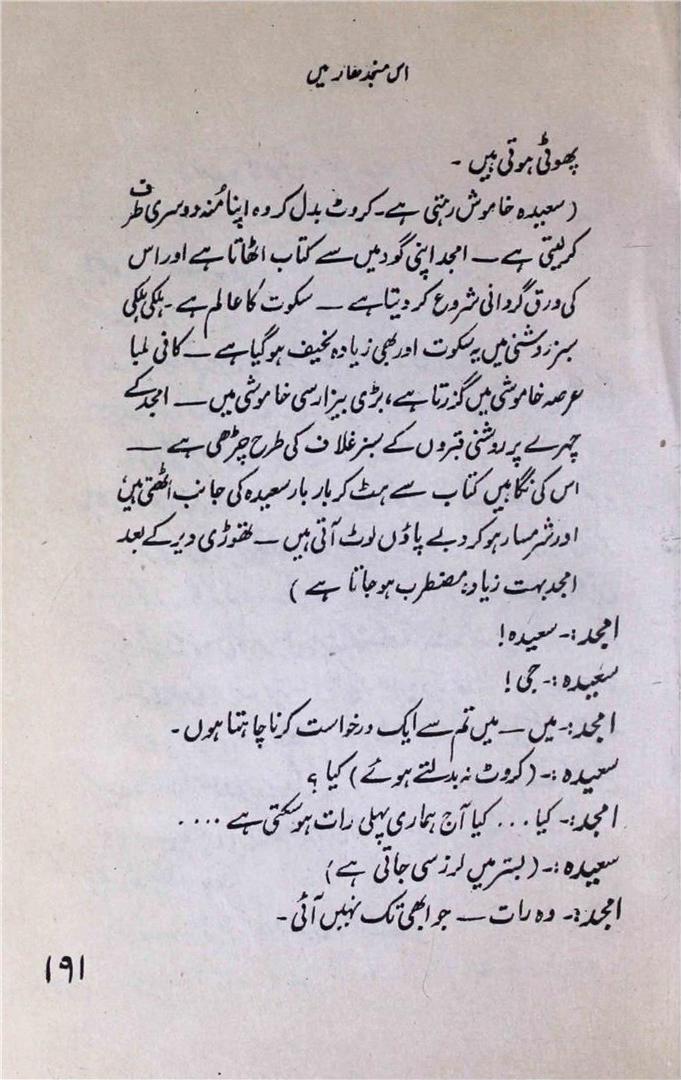 اس منجدھار میں
پھوٹی ہوتی ہیں ۔
( سعیدہ خاموش رہتی ہے۔ کروٹ بدل کر وہ اپنا مُنہ دوسری طرف
کرلیتی ہے — امجد اپنی گود میں سے کتاب اٹھاتا ہے اور اس
کی ورق گردانی شروع کر دیتا ہے — سکوت کا عالم ہے ۔ ہلکی ہلکی
سبز روشنی میں یہ سکوت اور بھی زیادہ نحیف ہو گیا ہے — کافی لمبا
عرصہ خاموشی میں گذرتا ہے، بڑی بیزار سی خاموشی میں — امجد کے
چہرے پر روشنی قبروں کے سبز غلاف کی طرح چڑھی ہے —
اس کی نگاہیں کتاب سے ہٹ کر بار بار سعیدہ کی جانب اٹھتی ہیں
اور شرمسار ہو کر دبے پاؤں لوٹ آتی ہیں — تھوڑی دیر کے بعد
امجد بہت زیادہ مضطرب ہو جاتا ہے )
امجد :۔ سعیدہ !
سعیدہ :۔ جی !
امجد :۔ میں — میں تم سے ایک درخواست کرنا چاہتا ہوں ۔
سعیدہ :۔ ( کروٹ نہ بدلتے ہوئے ) کیا ؟
امجد :۔ کیا ... کیا آج ہماری پہلی رات ہو سکتی ہے ....
سعیدہ :۔ ( بستر میں لرز سی جاتی ہے )
امجد :۔ وہ رات — جو ابھی تک نہیں آئی ۔
۱۹۱